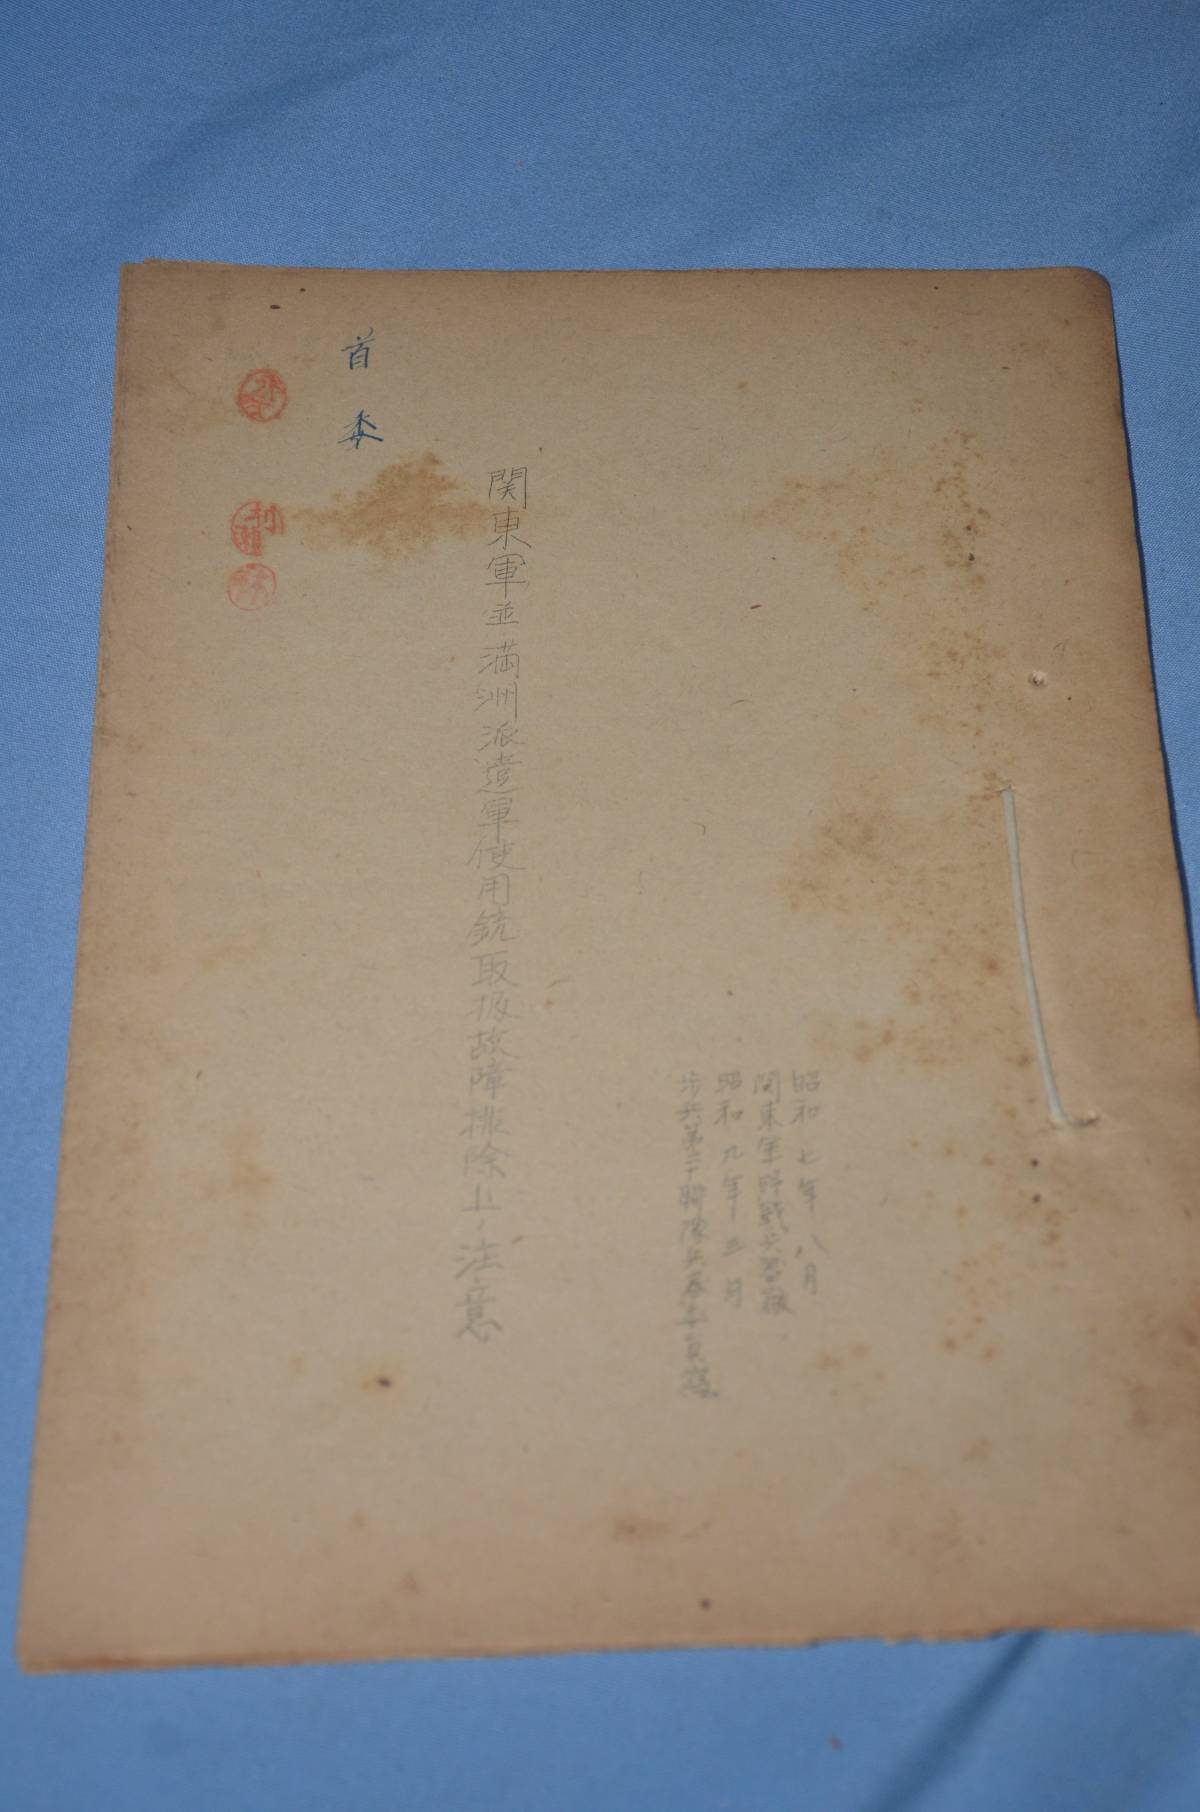 昭和七年八月
関東軍野戦兵器廠
昭和九年三月
歩兵第二十聯隊兵器委員
関東軍並満洲派遣軍使用銃取扱故障排除上ノ注意
首